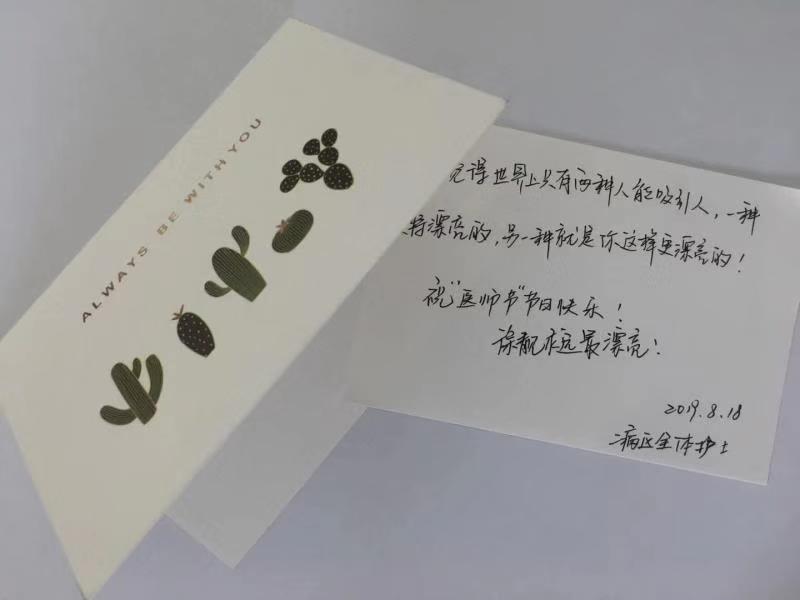 ALWAYS BE WITH YOU
觉得世界上只有两种人能吸引人,一种
特漂亮的,另一种就是你这样更漂亮的!
祝“医师节”节日快乐!
永远最漂亮!
2019.8.18
二病区全体护士